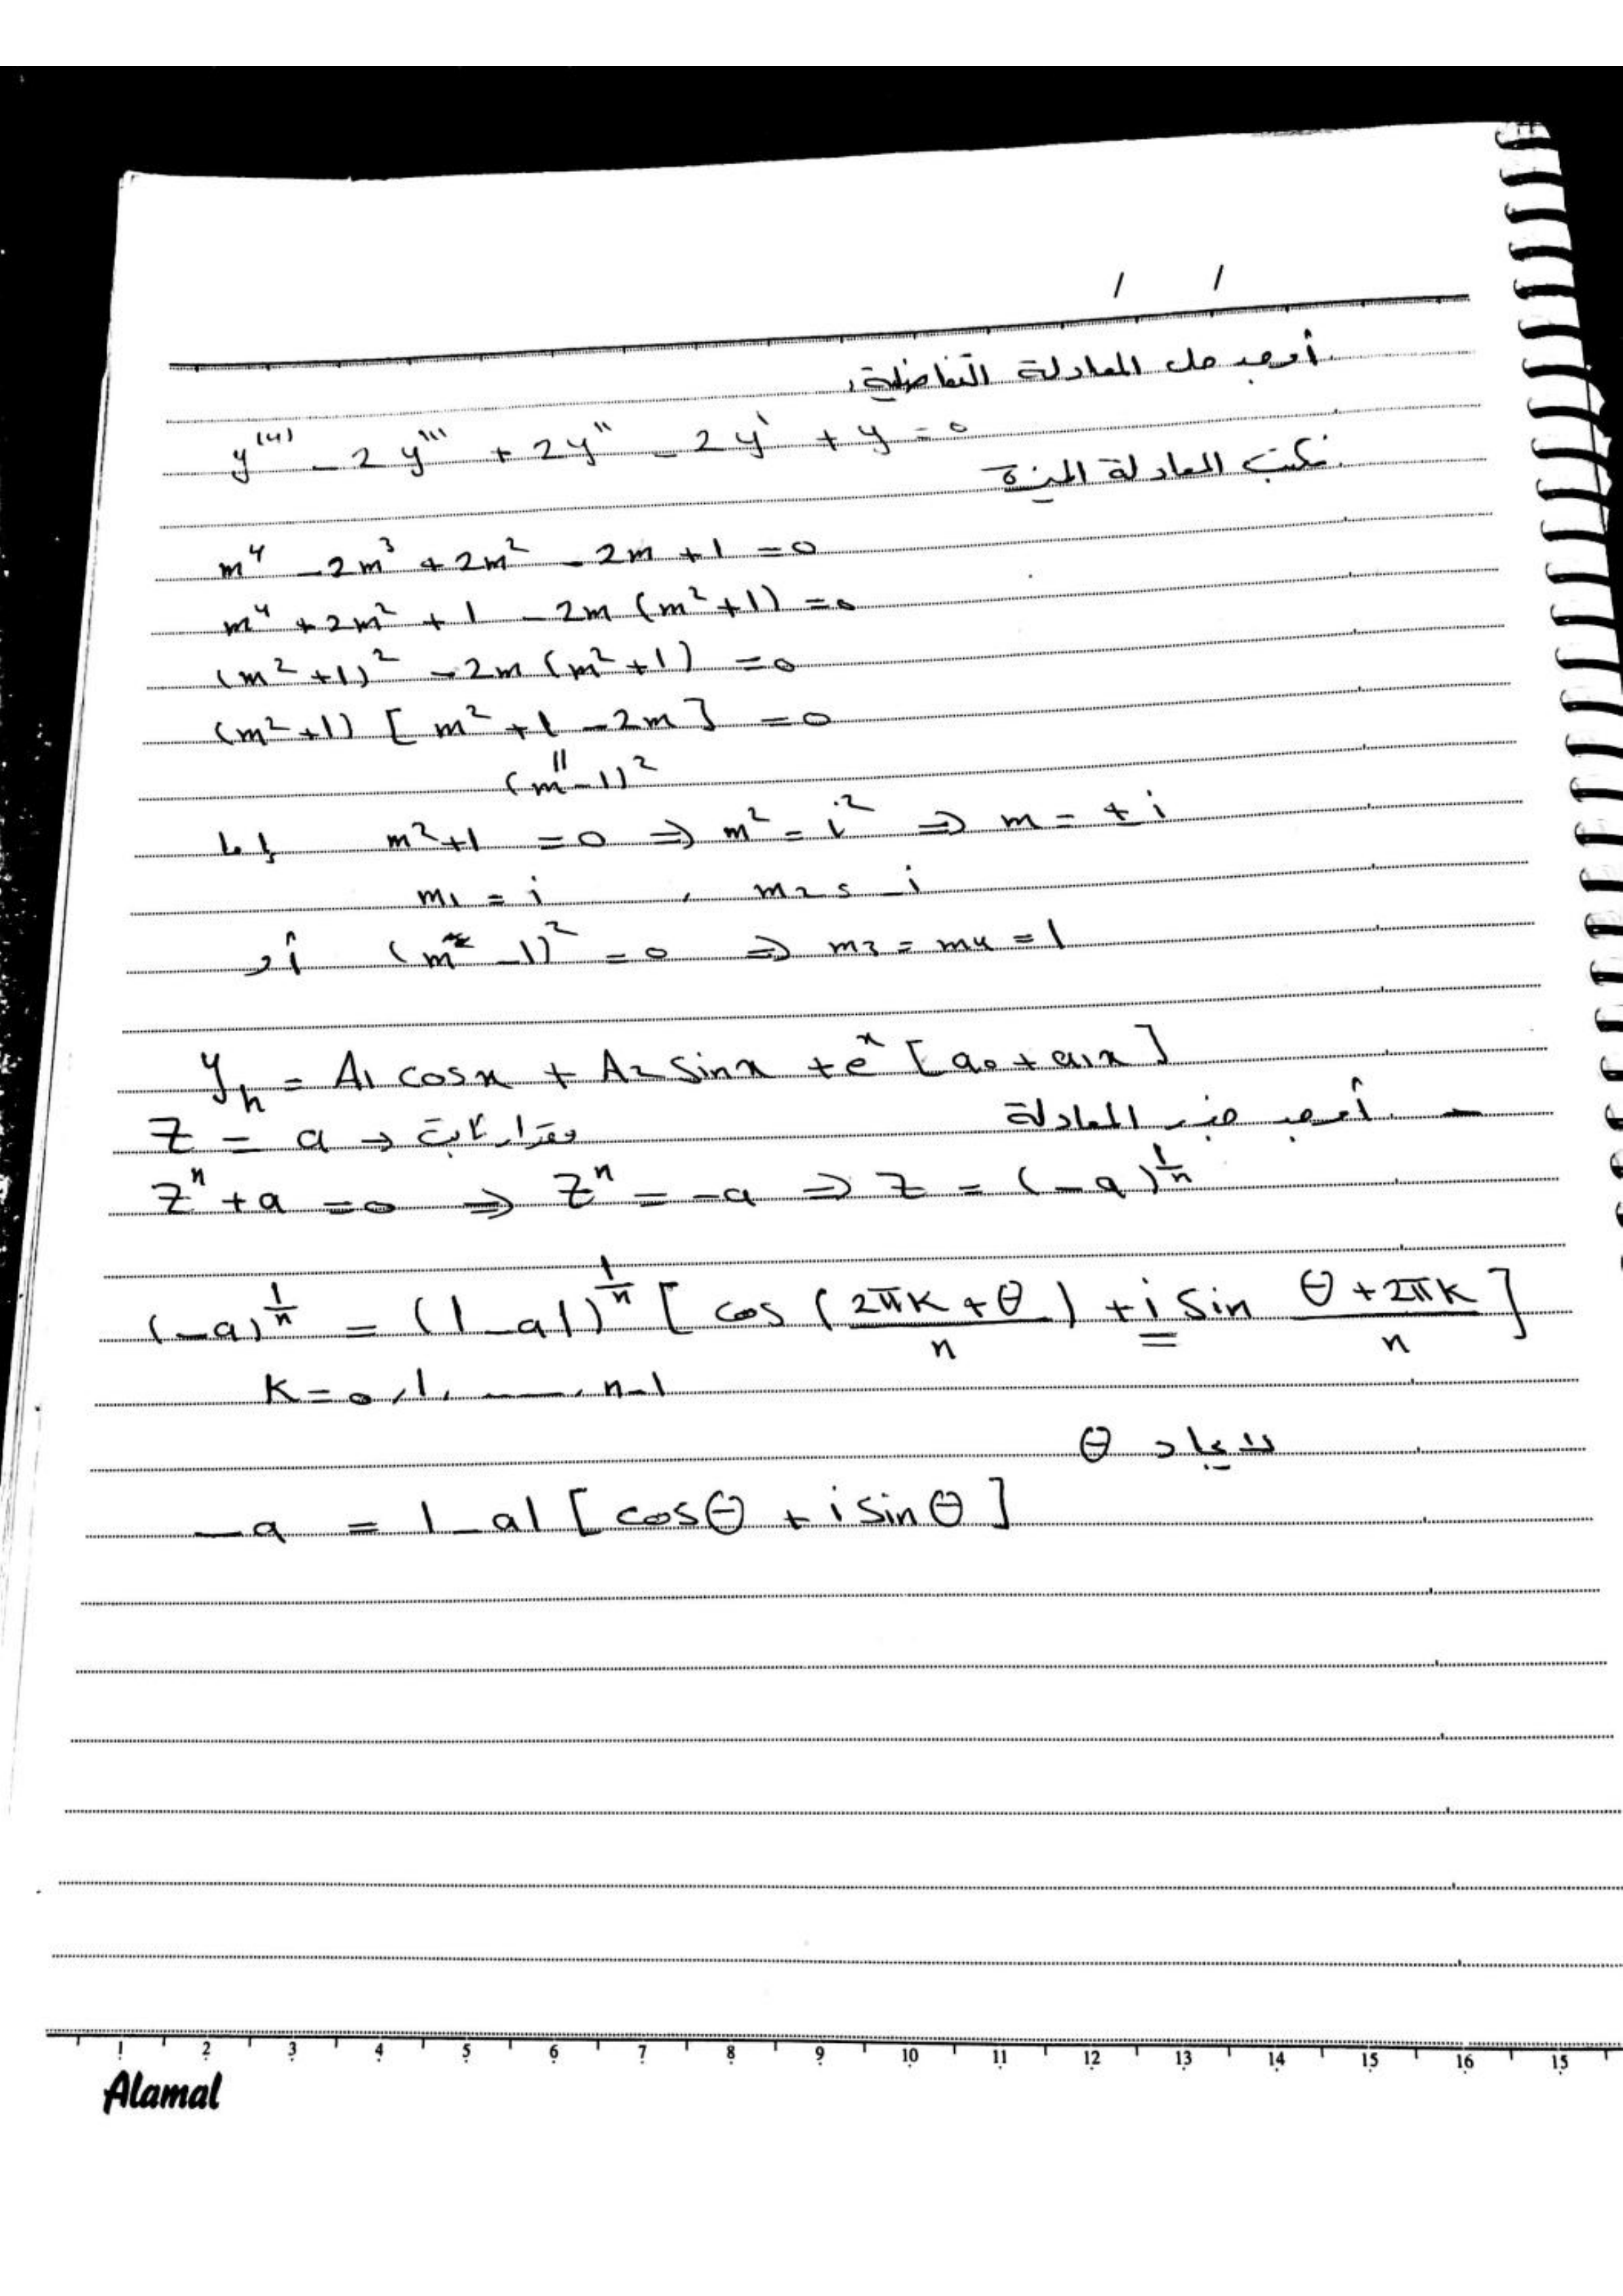 / /
أوجد حل المعادلة التفاضلية:
y⁽⁴⁾ - 2y''' + 2y'' - 2y' + y = 0
نكتب المعادلة المميزة
m⁴ - 2m³ + 2m² - 2m + 1 = 0
m⁴ + 2m² + 1 - 2m (m² + 1) = 0
(m² + 1)² - 2m (m² + 1) = 0
(m² + 1) [ m² + 1 - 2m ] = 0
(m - 1)²
إما m² + 1 = 0 ⇒ m² = i² ⇒ m = ± i
m₁ = i , m₂ = -i
أو (m - 1)² = 0 ⇒ m₃ = m₄ = 1
yₕ = A₁ cosx + A₂ sinx + eˣ [ a₀ + a₁x ]
- أوجد جذر المعادلة
Z = a →
Zⁿ + a = 0 ⇒ Zⁿ = -a ⇒ Z = (-a)^(1/n)
(-a)^(1/n) = (|-a|)^(1/n) [ cos ( (2πK + θ)/n ) + i sin (θ + 2πK)/n ]
K = 0, 1, ——, n-1
لايجاد θ
-a = |-a| [ cosθ + i sinθ ]
1 2 3 4 5 6 7 8 9 10 11 12 13 14 15 16 15
Alamal